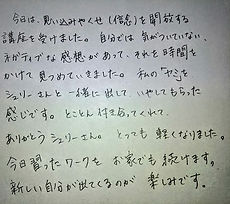 今日は、思い込みやくせ（信念）を開放する
講座を受けました。自分では気がつかない
ネガティブな感想があって、それを時間を
かけて見つめていきました。私の「ヤミを
シュリーさんと一緒に出して、いやしてもらった
感じです。とことん付き合ってくれて、
ありがとうシュリーさん。とっても軽くなりました。
今日習ったワークをお家でも続けます。
新しい自分が出てくるのが楽しみです。